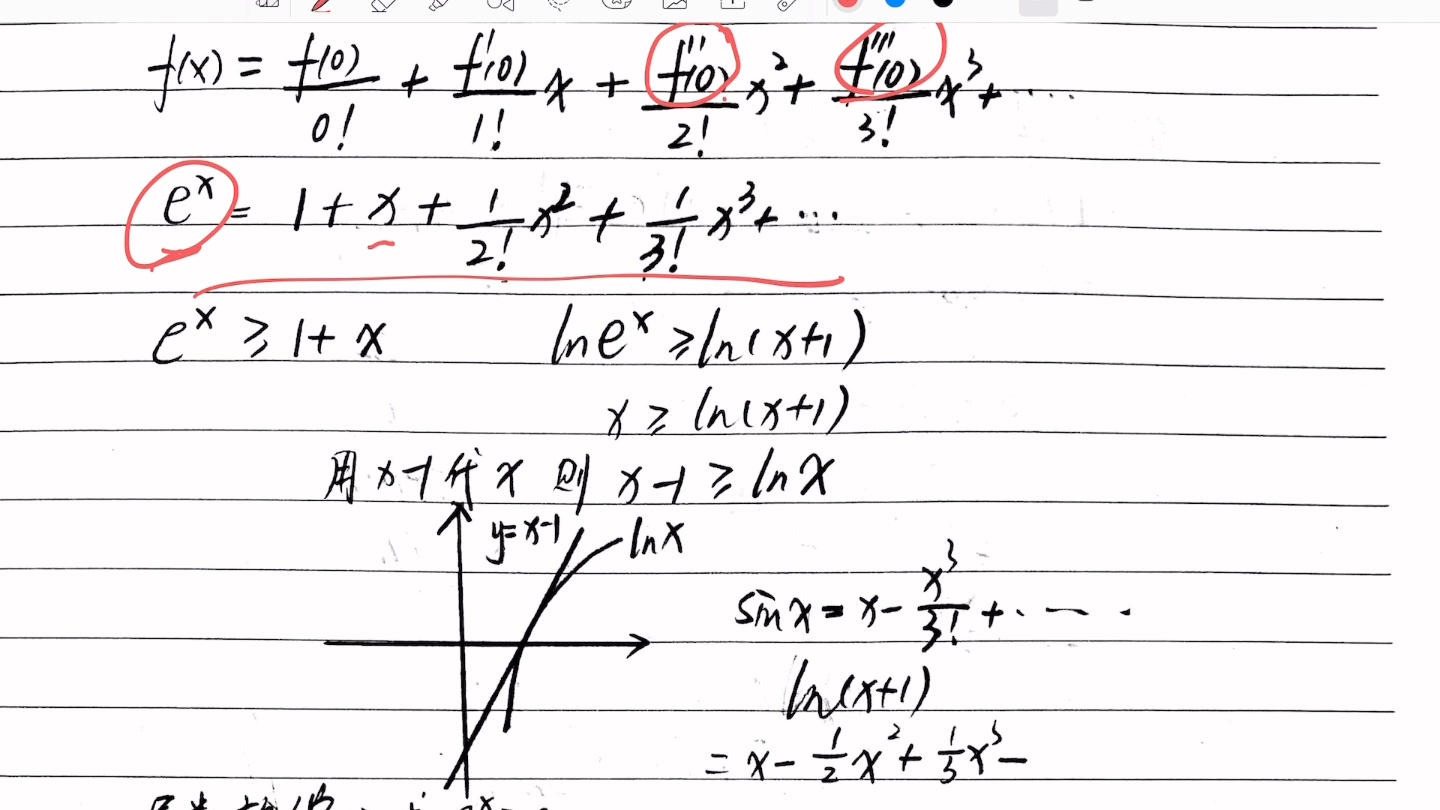 f(x) = f(0)/0! + f'(0)/1! x + f''(0)/2! x² + f'''(0)/3! x³ + ······
eˣ = 1 + x + 1/2! x² + 1/3! x³ + ···
eˣ ≥ 1 + x    ln eˣ ≥ ln(x+1)
x ≥ ln(x+1)
用 x-1 代 x 则 x-1 ≥ ln x
y=x-1    ln x
sin x = x - x³/3! + ·····
ln(x+1)
= x - 1/2 x² + 1/3 x³ -